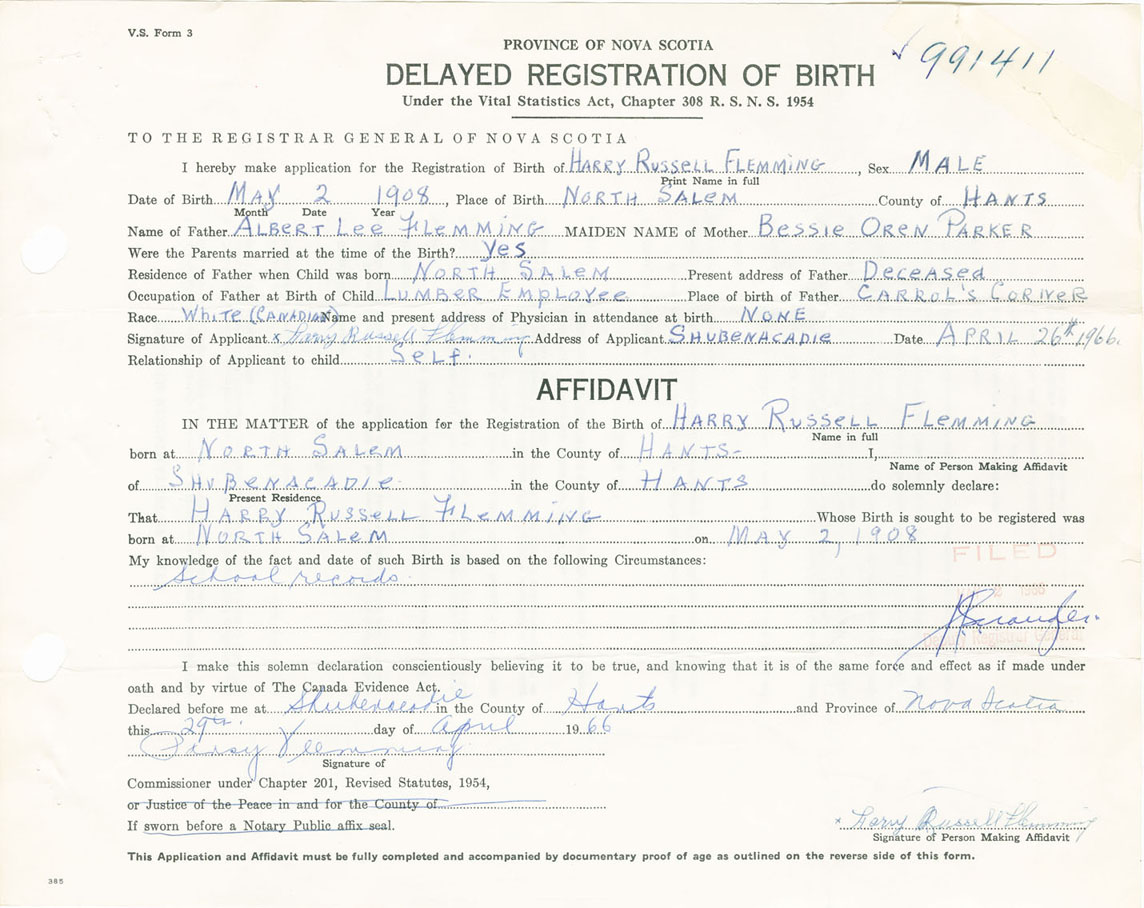 V.S. Form 3
991411
PROVINCE OF NOVA SCOTIA
DELAYED REGISTRATION OF BIRTH
Under the Vital Statistics Act, Chapter 308 R. S. N. S. 1954
TO THE REGISTRAR GENERAL OF NOVA SCOTIA
I hereby make application for the Registration of Birth of HARRY RUSSELL FLEMMING, Sex MALE
Print Name in full
Date of Birth MAY 2 1908, Place of Birth NORTH SALEM County of HANTS
Month Date Year
Name of Father ALBERT LEE FLEMMING MAIDEN NAME of Mother BESSIE OREN PARKER
Were the Parents married at the time of the Birth? Yes
Residence of Father when Child was born NORTH SALEM Present address of Father DECEASED
Occupation of Father at Birth of Child LUMBER EMPLOYEE Place of birth of Father CARROL'S CORNER
Race WHITE (CANADIAN) Name and present address of Physician in attendance at birth NONE
Signature of Applicant x Harry Russell Flemming Address of Applicant SHUBENACADIE Date APRIL 26th 1966.
Relationship of Applicant to child SELF.
AFFIDAVIT
IN THE MATTER of the application for the Registration of the Birth of HARRY RUSSELL FLEMMING
Name in full
born at NORTH SALEM in the County of HANTS- I,
Name of Person Making Affidavit
of SHUBENACADIE in the County of HANTS do solemnly declare:
Present Residence
That HARRY RUSSELL FLEMMING Whose Birth is sought to be registered was
born at NORTH SALEM on MAY 2, 1908
My knowledge of the fact and date of such Birth is based on the following Circumstances:
FILED
School records.
1966
Deputy Registrar General
I make this solemn declaration conscientiously believing it to be true, and knowing that it is of the same force and effect as if made under
oath and by virtue of The Canada Evidence Act.
Declared before me at Shubenacadie in the County of Hants and Province of Nova Scotia
this 29th. day of April 1966
Flemming
Signature of
Commissioner under Chapter 201, Revised Statutes, 1954,
or Justice of the Peace in and for the County of
If sworn before a Notary Public affix seal.
x Harry Russell Flemming
Signature of Person Making Affidavit
This Application and Affidavit must be fully completed and accompanied by documentary proof of age as outlined on the reverse side of this form.
385